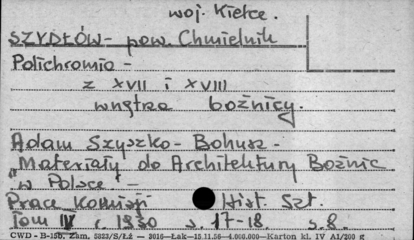 woj. Kielce.
SZYDŁÓW - pow. Chmielnik
Polichromia -
z XVII i XVIII
wnętrze bożnicy.
Adam Szyszko - Bohusz -
"Materiały do Architektury Bożnic
"w Polsce" -
Prace Komisji Hist. Szt.
Tom IV r. 1930 s. 17-18. s. 8.
CWD - B-15b. Zam. 5823/S/Łź — 2016—Łak—15.11.56—4.000.000—Karton kl. IV A1/200 g